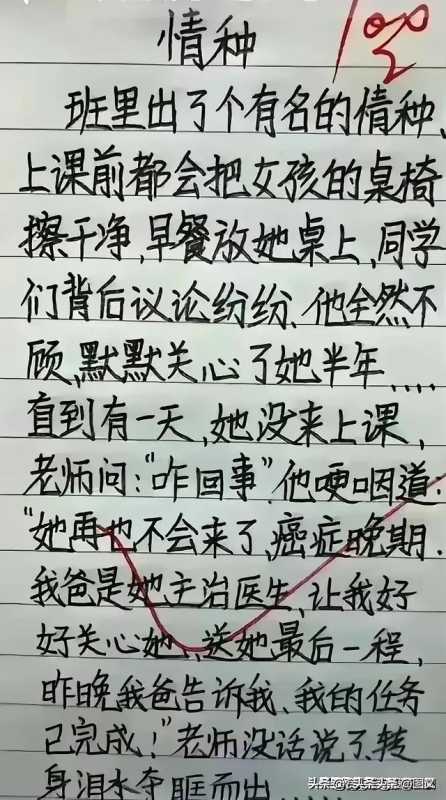 100
情种
班里出了个有名的情种、
上课前都会把女孩的桌椅
擦干净,早餐放她桌上,同学
们背后议论纷纷、他全然不
顾,默默关心了她半年....
直到有一天,她没来上课,
老师问:"咋回事"他哽咽道:
"她再也不会来了,癌症晚期.
我爸是她主治医生、让我好
好关心她,送她最后一程,
昨晚我爸告诉我、我的任务
己完成!"老师没话说了、转
身泪水夺眶而出......